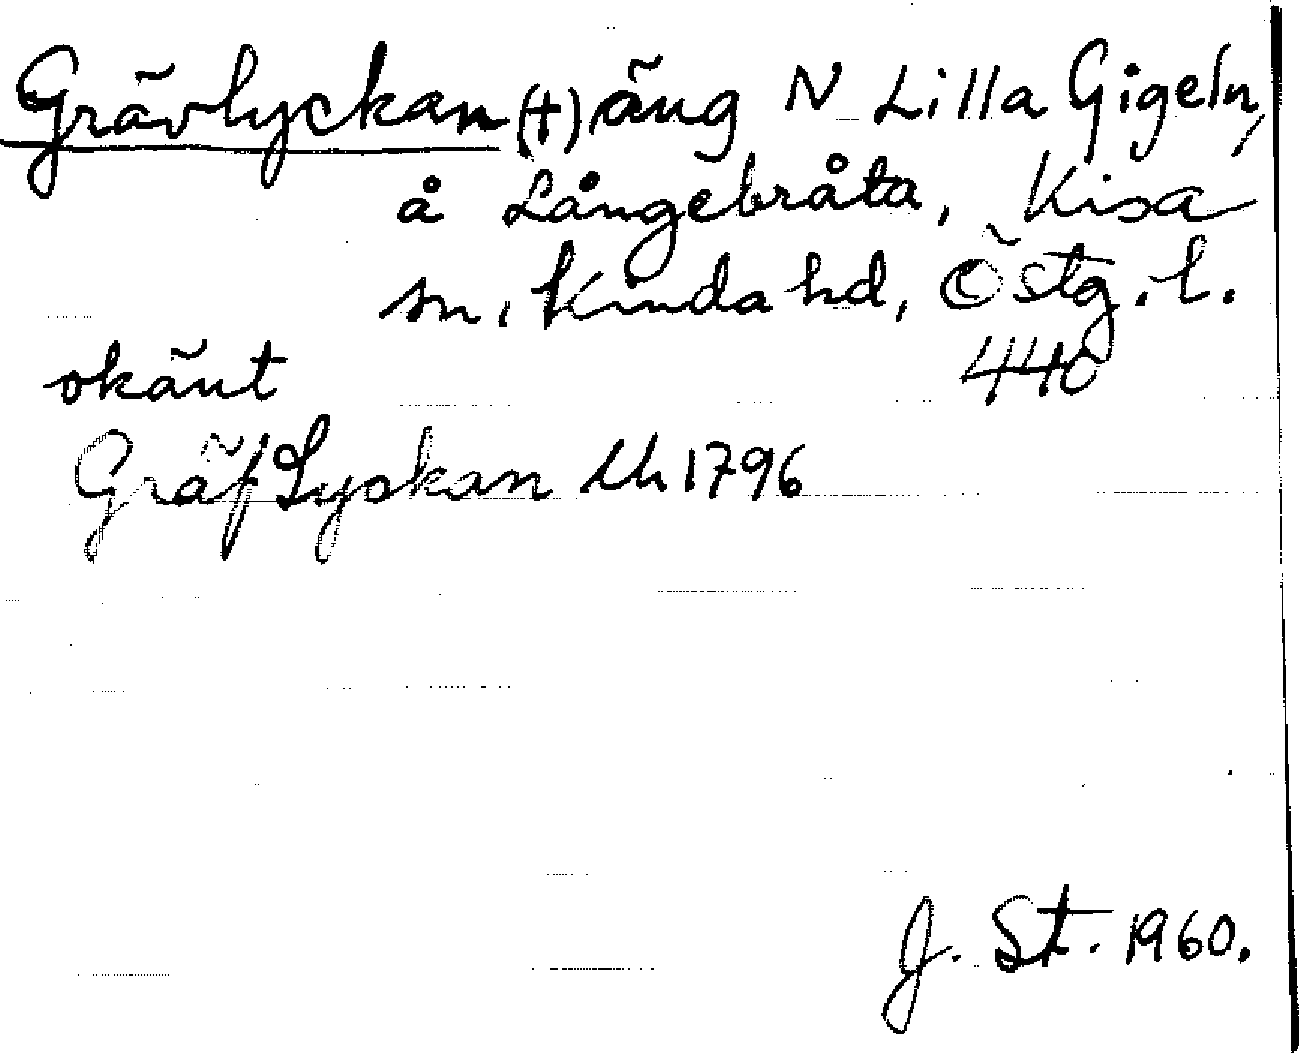 Grävlyckan (+) äng N Lilla Gigeln,
å Långebråta, Kisa
sn, Kinda hd, Östg. l.
okänt 440
GräfLyckan Uh 1796
J. St. 1960.